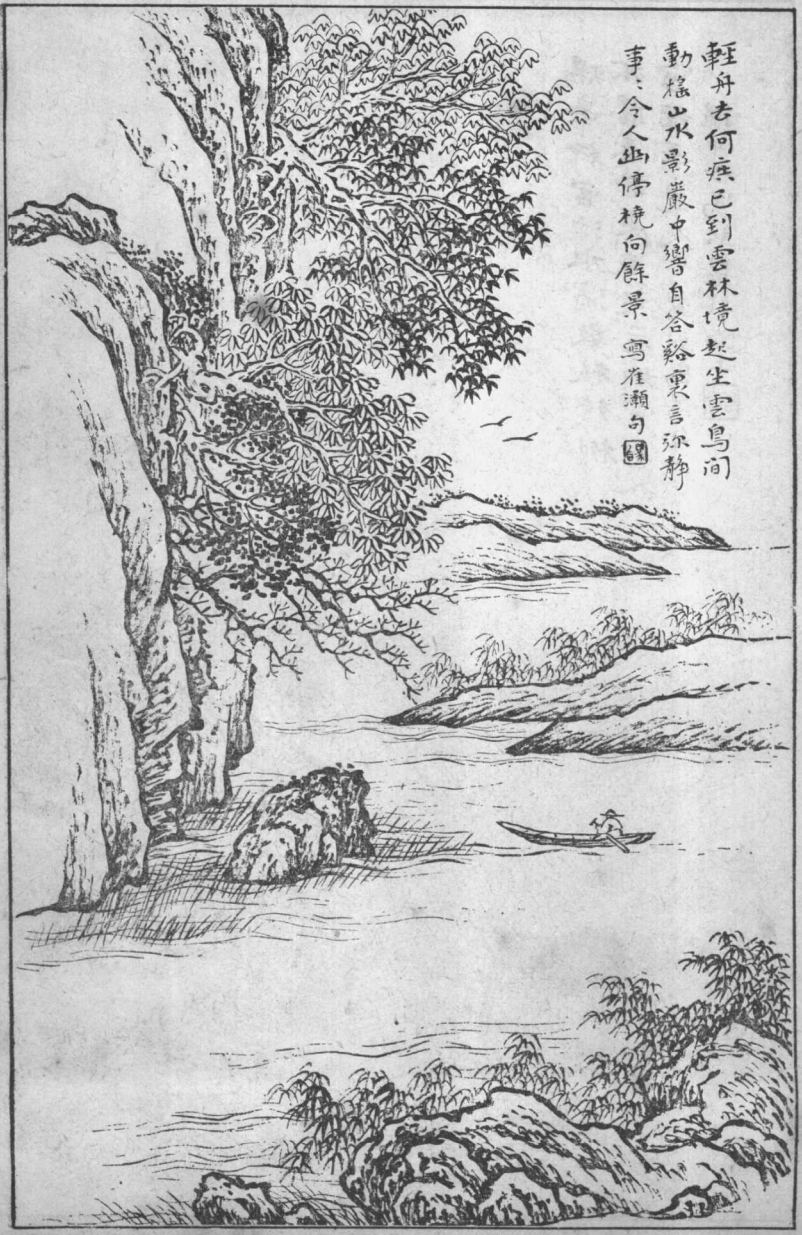 輕舟去何疾已到雲林境起坐雲鳥间
動搖山水影嚴中響自答谿裏言弥静
事〻令人幽停橈向餘景　寫崔灝句